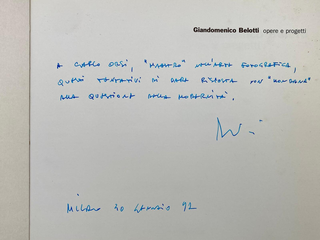 Giandomenico Belotti opere e progetti
A CARLO ORSI, "MAESTRO" NELL'ARTE FOTOGRAFICA,
QUESTI TENTATIVI DI DARE RISPOSTA NON "MONDANA"
ALLA QUESTIONE DELLA MODERNITÀ.
MILANO 30 GENNAIO 92